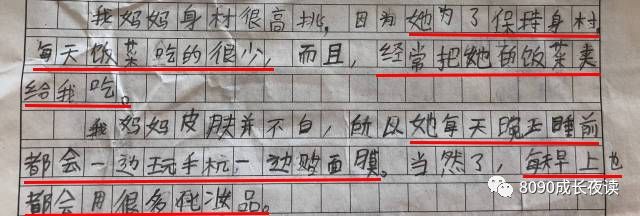 我妈妈身材很高挑，因为她为了保持身材，
每天饭菜吃的很少，而且，经常把她的饭菜夹
给我吃。
我妈妈皮肤并不白，所以她每天晚上睡前
都会一边玩手机，一边贴面膜。当然了，每早上也
都会用很多化妆品。
8090成长夜读